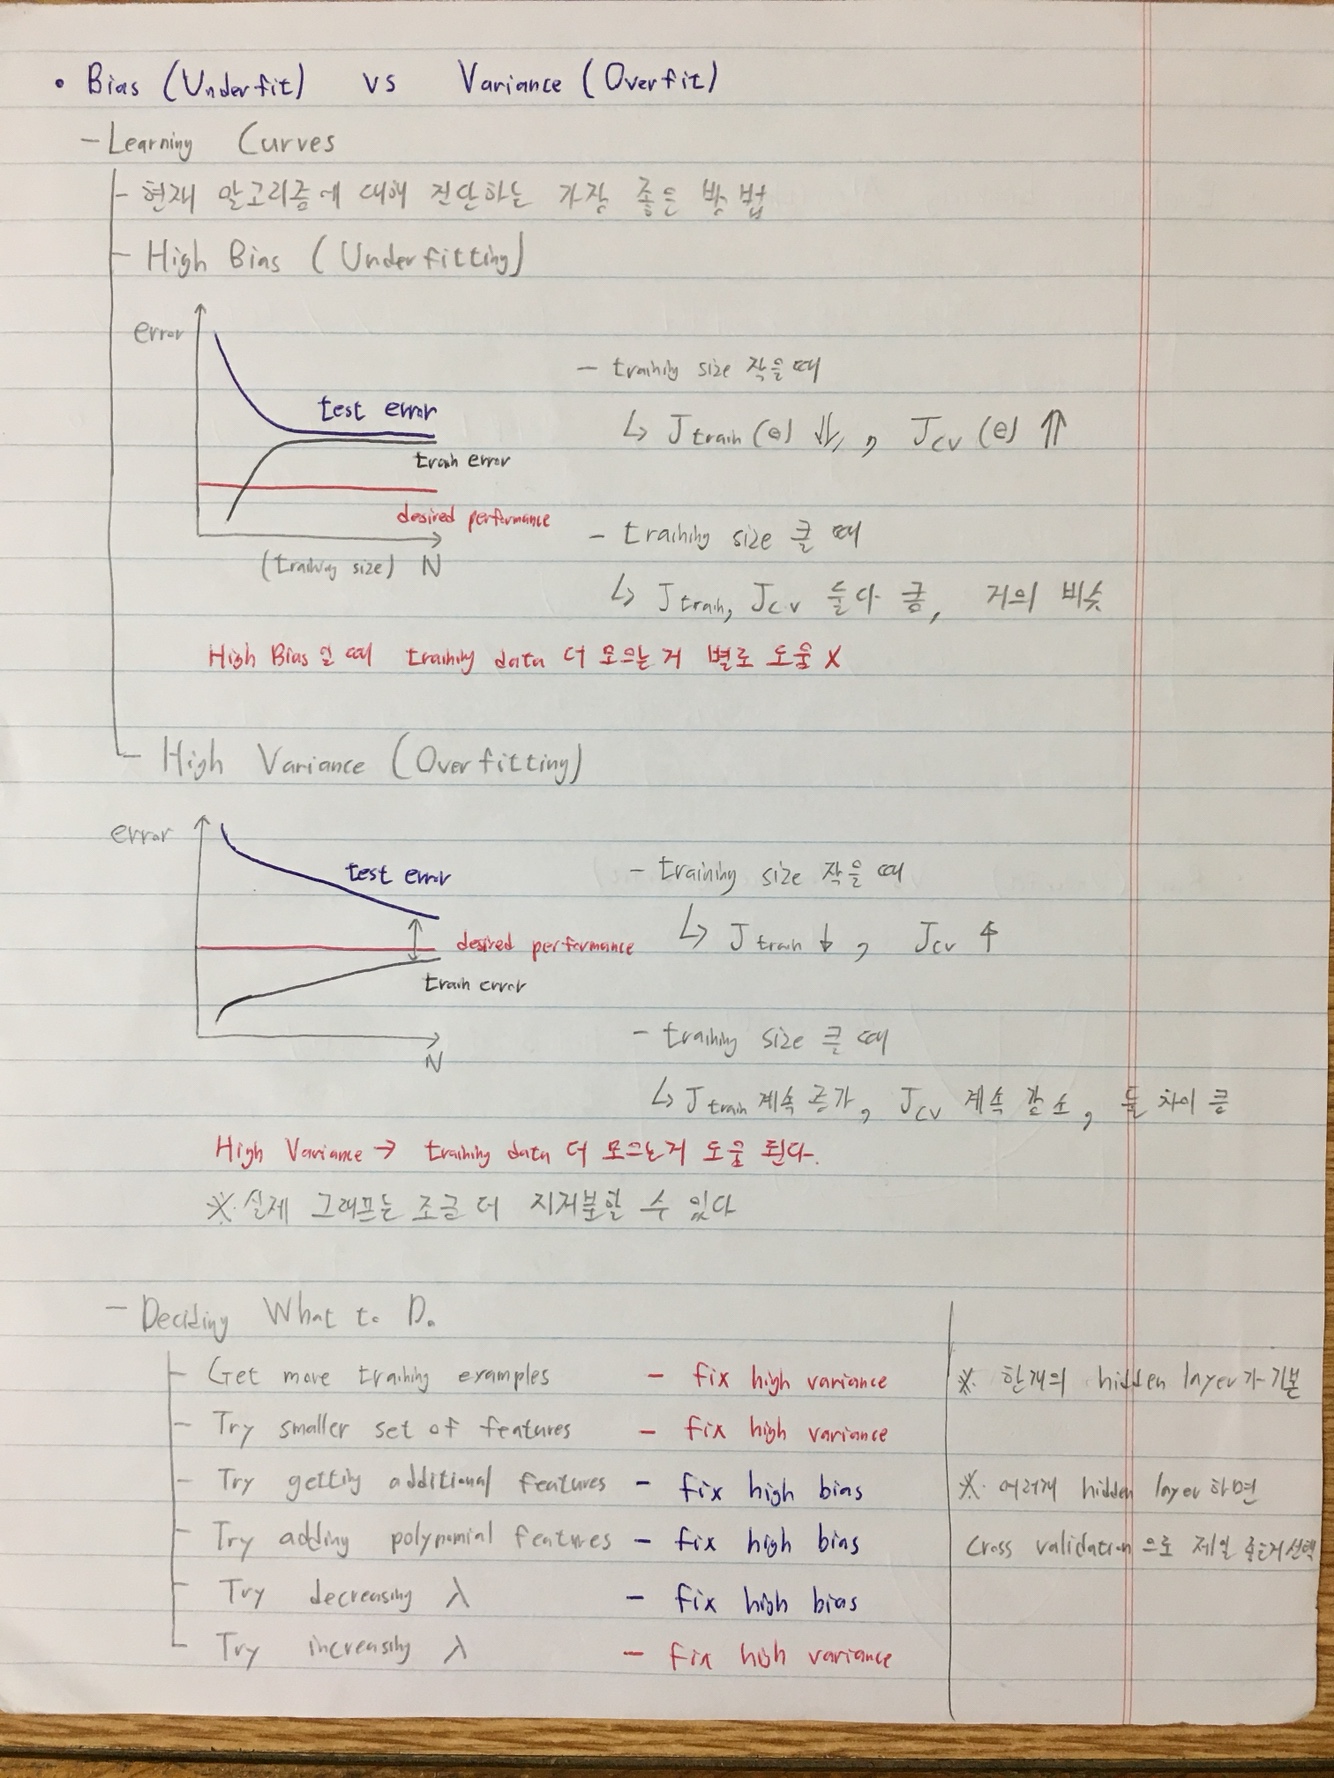 • Bias (Underfit) vs Variance (Overfit)
- Learning Curves
- 현재 알고리즘에 대해 진단하는 가장 좋은 방법
- High Bias (Underfitting)
error
test error
train error
desired performance
(training size) N
- training size 작을 때
↳ J train (θ) ⇓, J cv (θ) ⇑
- training size 클 때
↳ J train, J cv 둘다 큼, 거의 비슷
High Bias 일 때 training data 더 모으는 거 별로 도움 X
- High Variance (Overfitting)
error
test error
desired performance
train error
N
- training size 작을 때
↳ J train ↓, J cv ↑
- training size 클 때
↳ J train 계속 증가, J cv 계속 감소, 둘 차이 큼
High Variance → training data 더 모으는거 도움 된다.
※ 실제 그래프는 조금 더 지저분할 수 있다
- Deciding What to Do
- Get more training examples - fix high variance
- Try smaller set of features - fix high variance
- Try getting additional features - fix high bias
- Try adding polynomial features - fix high bias
- Try decreasing λ - fix high bias
- Try increasing λ - fix high variance
※ 한개의 hidden layer가 기본
※ 여러개 hidden layer 하면
cross validation으로 제일 좋은거 선택